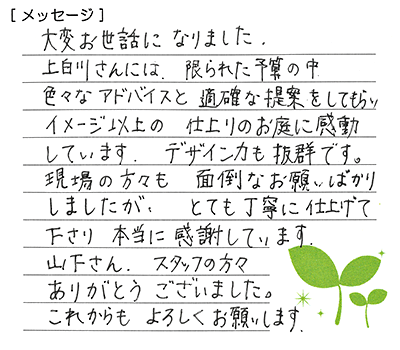 [ メッセージ ]
大変お世話に なりました.
上白川さんには. 限られた予算の中
色々なアドバイスと 適確な提案をしてもらい
イメージ以上の 仕上りのお庭に感動
しています. デザイン力も 抜群です。
現場の方々も 面倒なお願いばかり
しましたが、 とても丁寧に仕上げて
下さり 本当に 感謝しています.
山下さん. スタッフの方々
ありがとう ございました。
これからも よろしくお願いします.